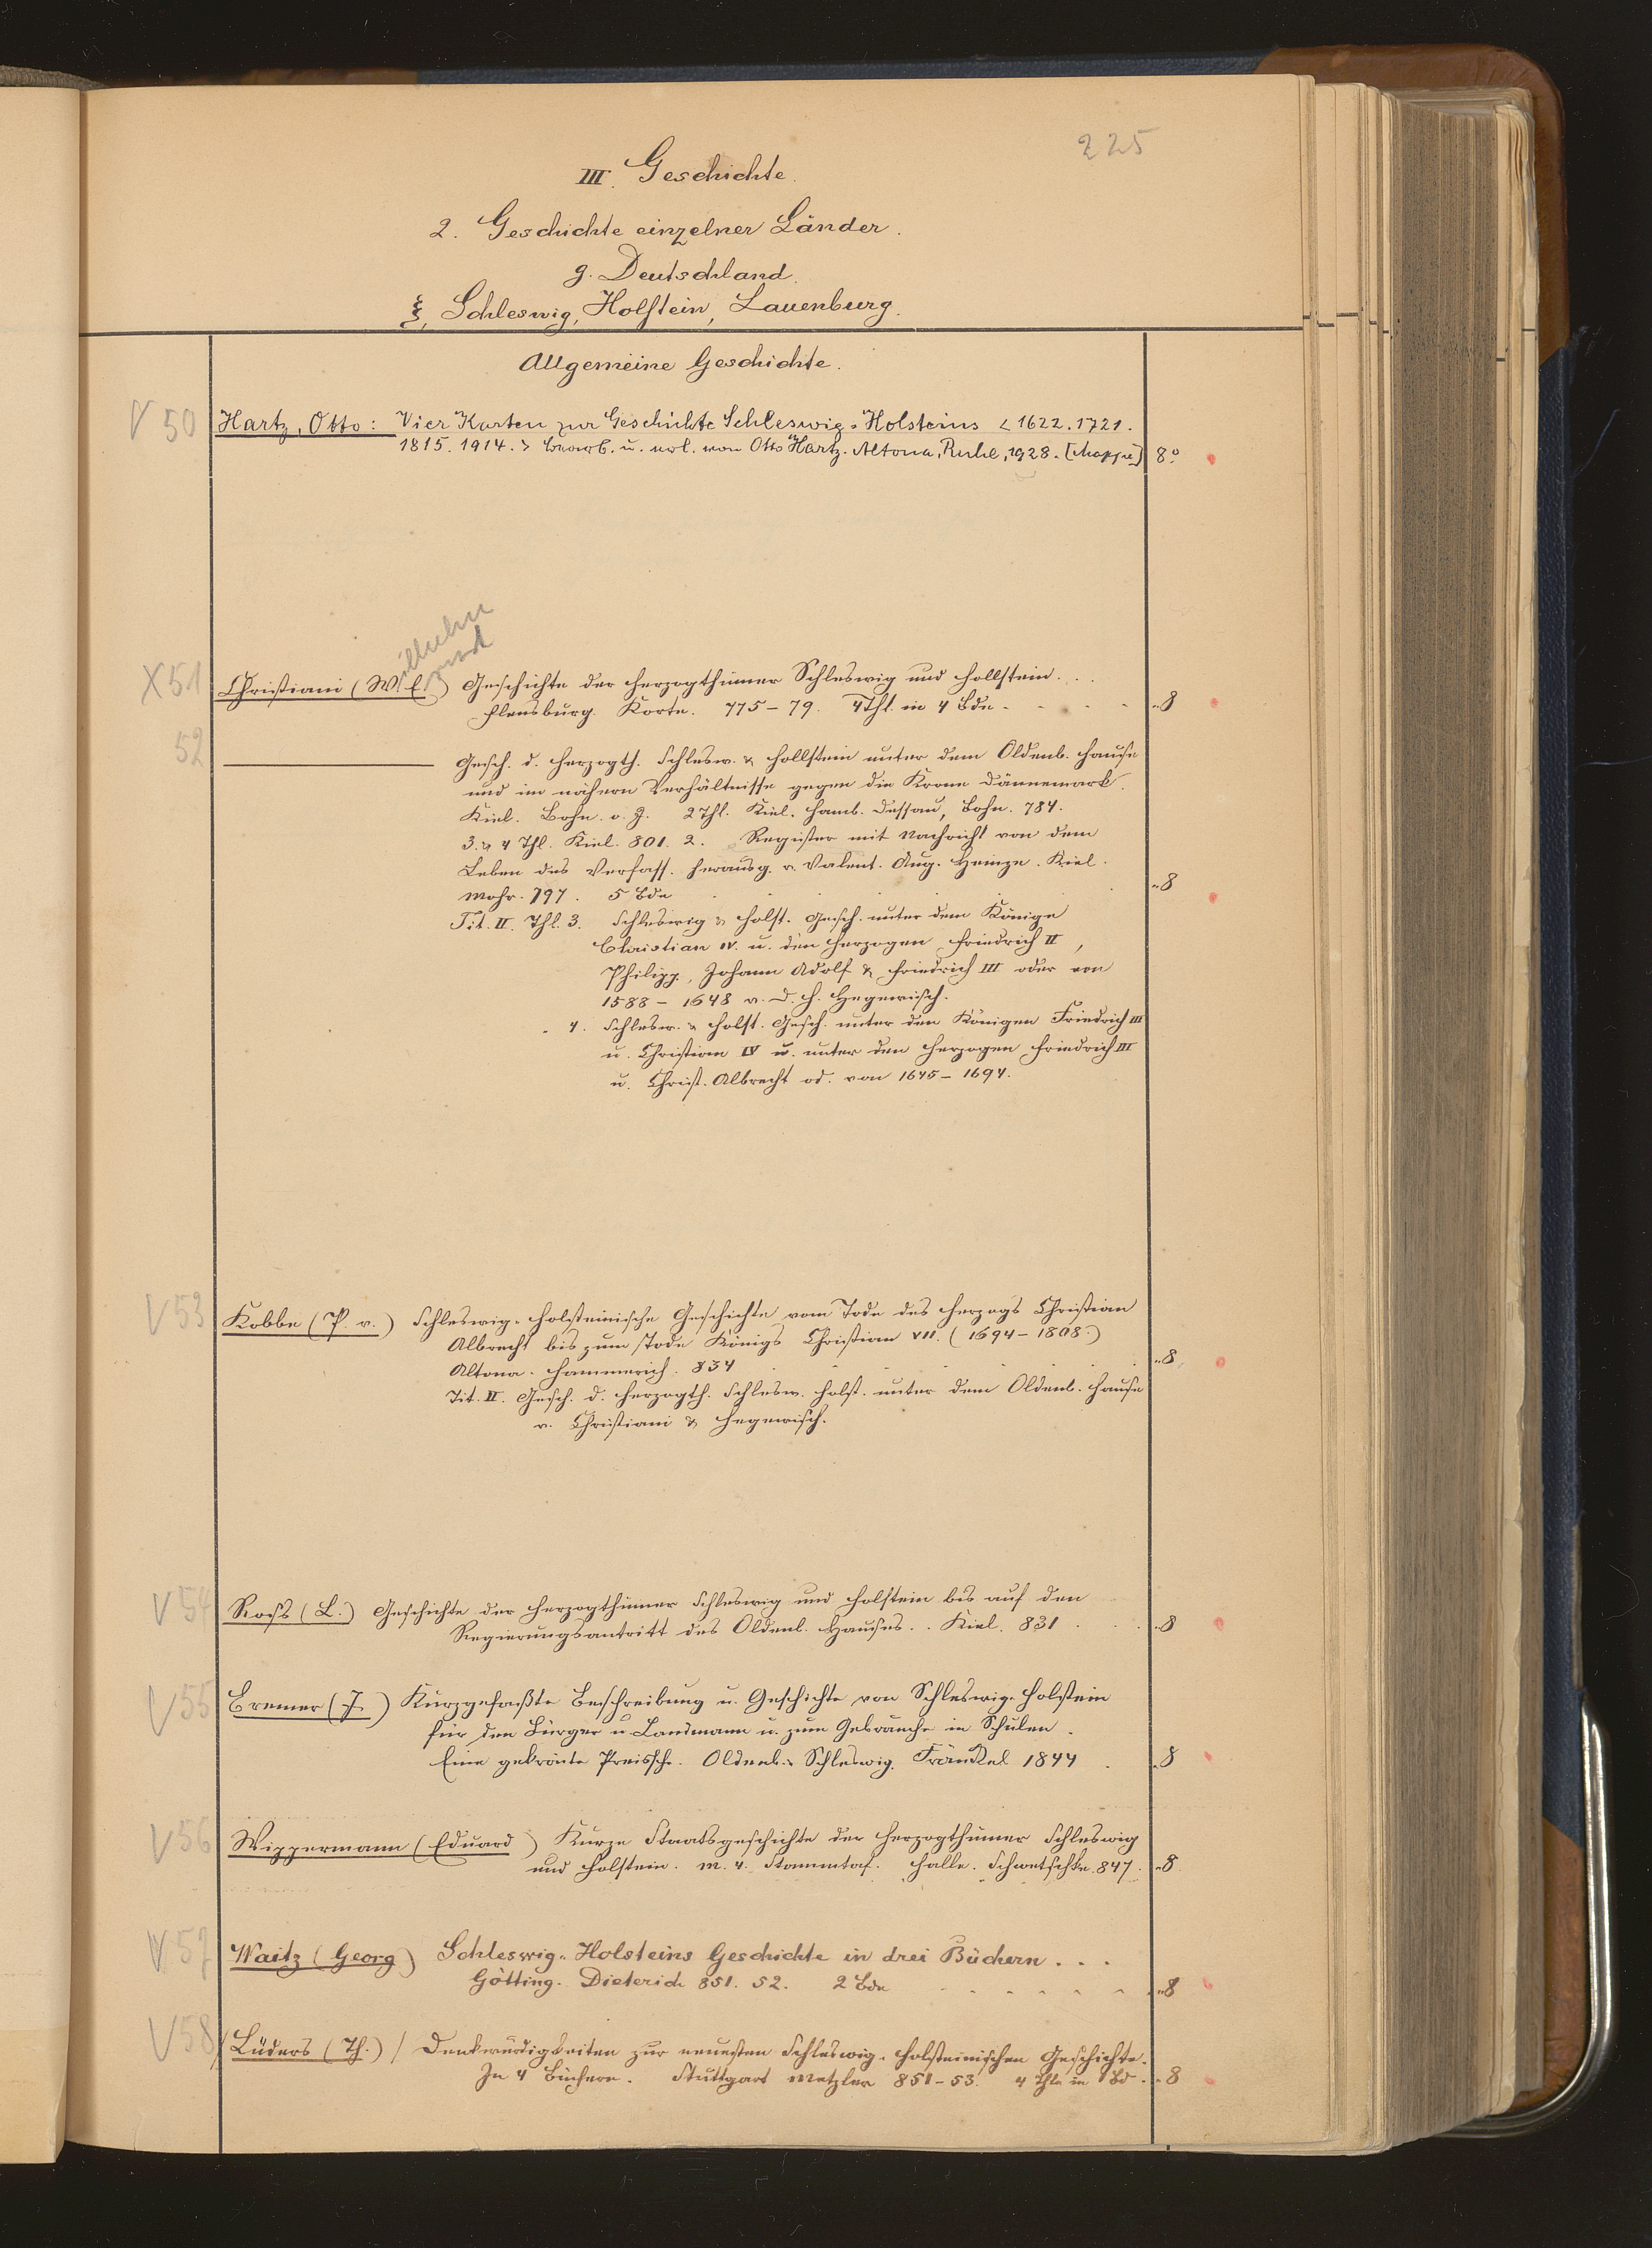 225
III. Geschichte.
2. Geschichte einzelner Länder.
g. Deutschland.
ξ, Schleswig, Holstein, Lauenburg.
Allgemeine Geschichte.
V 50 Hartz, Otto: Vier Karten zur Geschichte Schleswig-Holsteins <1622. 1721.
1815. 1914.> bearb. u. erl. von Otto Hartz. Altona, Ruhe, 1928. [Mappe] 8°
X 51 Christiani (W. E.) Geschichte der Herzogthümer Schleswig und Hollstein. . .
Wilhelm
Flensburg. Korte. 775–79. 4 Thl. in 4 Bde - - - - -- 8
52 ——— Gesch. d. Herzogth. Schlesw. & Hollstein unter dem Oldenb. Hause
und im nähern Verhältnisse gegen die Krone Dännemark.
Kiel. Bohn. o. J. 2 Thl. Kiel. Hamb. Dessau, Bohn. 784.
3. & 4 Thl. Kiel. 801. 2. Register mit Nachricht von dem
Leben des Verfass. herausg. v. Valent. Aug. Heinze. Kiel.
Mohr. 797. 5 Bde -- 8
Tit. II. Thl. 3. Schleswig & Holst. Gesch. unter dem Könige
Christian IV. u. den Herzogen Friedrich II,
Philipp, Johann Adolf & Friedrich III oder von
1588 – 1648 v. D. H. Hegewisch.
" 4. Schlesw. & Holst. Gesch. unter den Königen Friedrich III
u. Christian IV u. unter den Herzogen Friedrich III
u. Christ. Albrecht od. von 1645 – 1694.
V 53 Kobbe (P. v.) Schleswig-Holsteinische Geschichte vom Tode des Herzogs Christian
Albrecht bis zum Tode Königs Christian VII. (1694–1808.)
Altona. Hammerich. 834 -- 8.
Tit. II. Gesch. d. Herzogth. Schlesw. Holst. unter dem Oldenb. Hause
v. Christiani & Hegewisch.
V 54 Roß (L.) Geschichte der Herzogthümer Schleswig und Holstein bis auf den
Regierungsantritt des Oldenb. Hauses. . Kiel. 831 . . . -- 8
V 55 Bremer (J.) Kurzgefaßte Beschreibung u. Geschichte von Schleswig-Holstein
für den Bürger u. Landmann u. zum Gebrauche in Schulen.
Eine gekrönte Preissch. Oldenb. Schleswig. Fränckel 1844 . -- 8
V 56 Wippermann (Eduard) Kurze Staatsgeschichte der Herzogthümer Schleswig
und Holstein. M. 4. Stammtaf. Halle. Schwetschke. 847. -- 8
V 57 Waitz (Georg) Schleswig-Holsteins Geschichte in drei Büchern . . .
Götting. Dieterich 851. 52. 2 Bde - - - - - - -- 8
V 58 / Lüders (Th.) / Denkwürdigkeiten zur neuesten Schleswig-Holsteinischen Geschichte.
In 4 Büchern. Stuttgart Metzler 851–53. 4 Thle in 1 Bd. -- 8